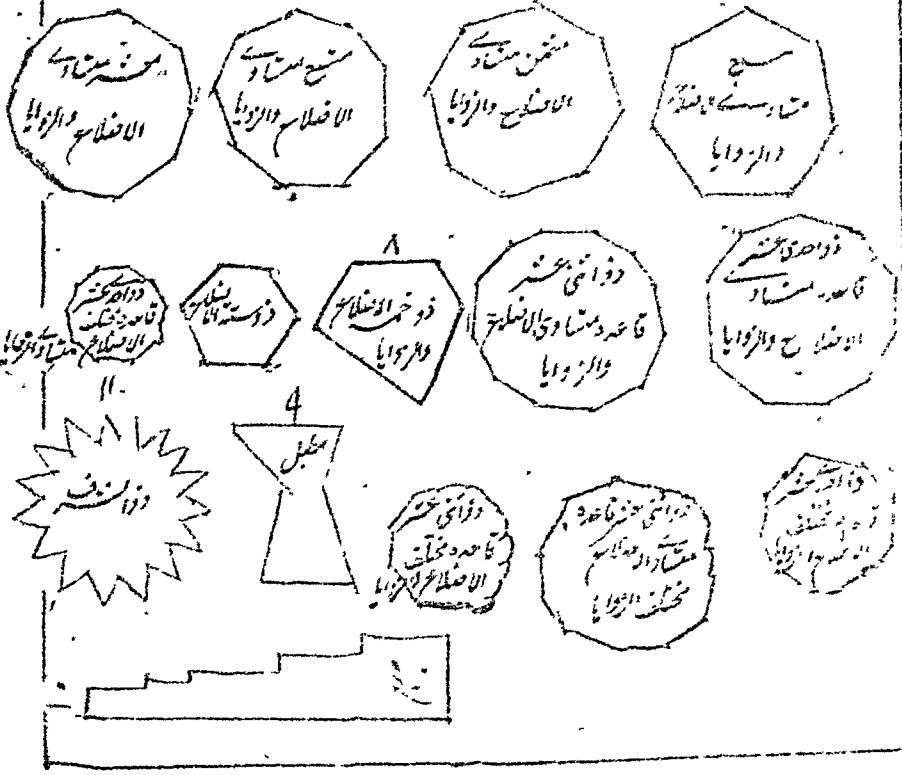 مسبع
متساوے الاضلاع
والزوایا
مثمن متساوے
الاضلاع والزوایا
متسع متساوے
الاضلاع والزوایا
معشر متساوے
الاضلاع والزوایا
ذواحدی عشر
قاعدہ متساوے
الاضلاع والزوایا
ذواثنی عشر
قاعدہ متساوی الاضلاع
والزوایا
۸
ذو خمسہ الاضلاع
والزوایا
ذوستہ الاضلاع
ذواحدے عشر
قاعدہ مختلف
الاضلاع متساوے الزوایا
۱۱
ذواحدے عشر
قاعدہ مختلف
الاضلاع والزوایا
ذواثنی عشر قاعدہ
متساوے الاضلاع
مختلف الزوایا
ذواثنی عشر
قاعدہ مختلف
الاضلاع والزوایا
مطبل
ذوالشرف